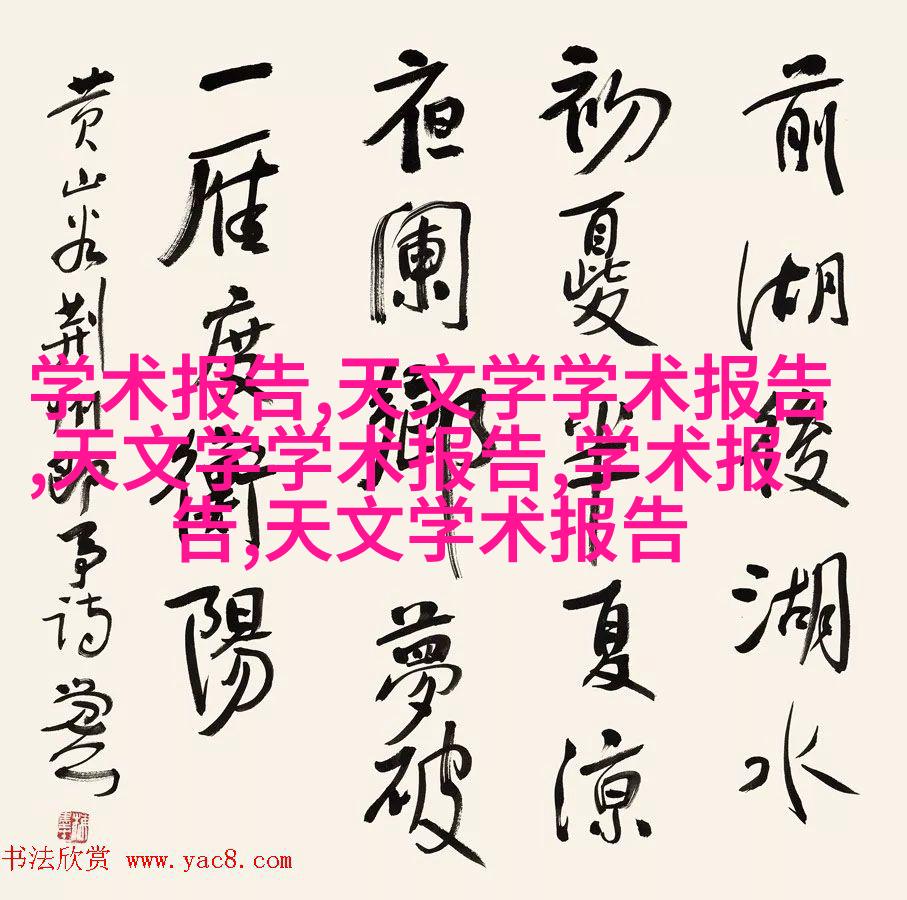 前湖後湖水
初夏半夏涼
夜闌鄉夢破
一雁度衡陽
黄山谷荆州即事詩
学术报告,天文学学术报告
,天文学学术报告,学术报
告,天文学术报告
书法欣赏 www.yac8.com